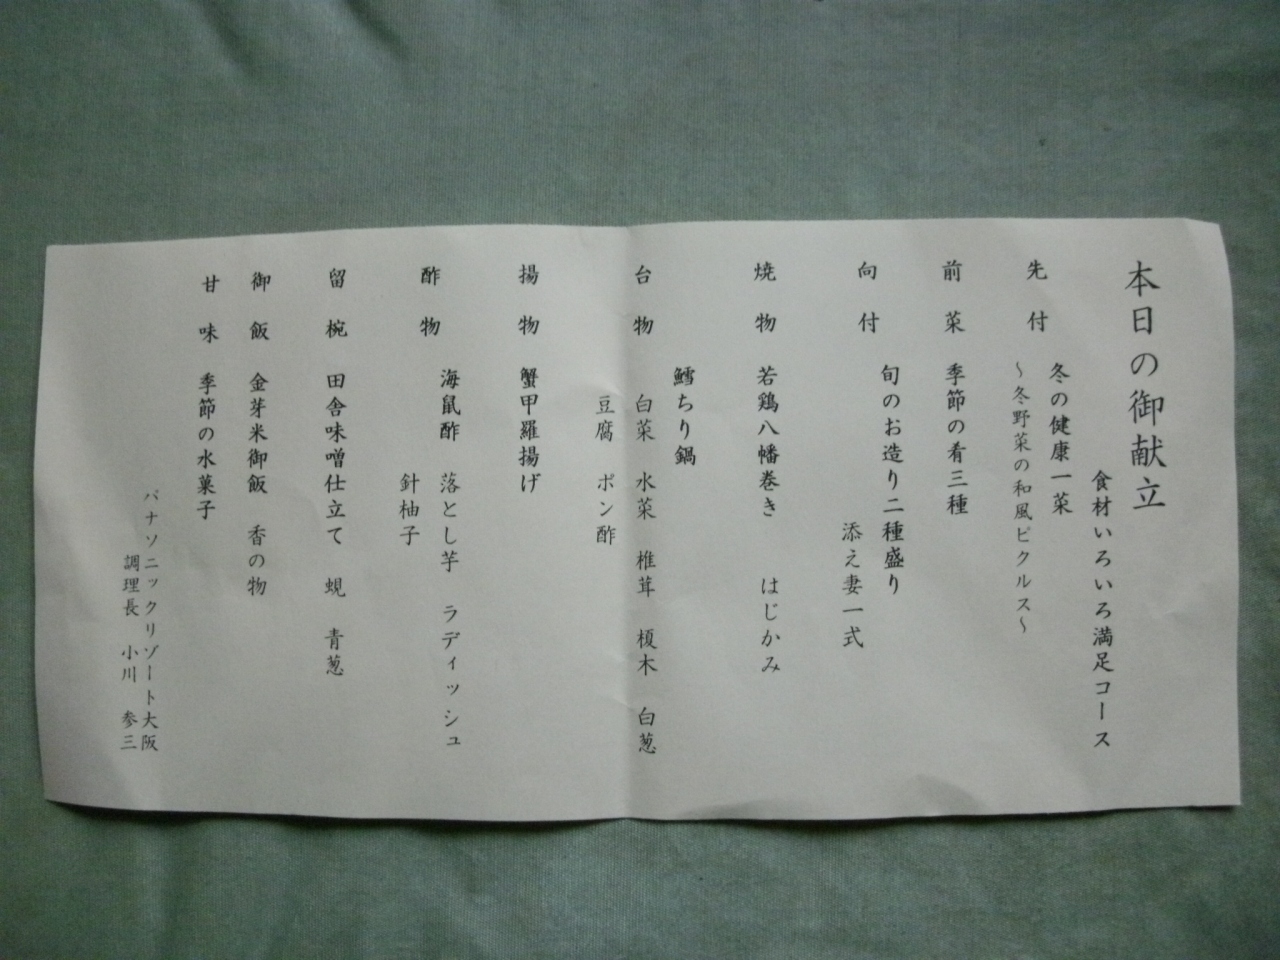 本日の御献立
食材いろいろ満足コース
先付 冬の健康一菜
～冬野菜の和風ピクルス～
前菜 季節の肴三種
向付 旬のお造り二種盛り
添え妻一式
焼物 若鶏八幡巻き はじかみ
台物 鱈ちり鍋
白菜 水菜 椎茸 榎木 白葱
豆腐 ポン酢
揚物 蟹甲羅揚げ
酢物 海鼠酢 落とし芋 ラディッシュ
針柚子
留椀 田舎味噌仕立て 蜆 青葱
御飯 金芽米御飯 香の物
甘味 季節の水菓子
パナソニックリゾート大阪
調理長 小川 参三